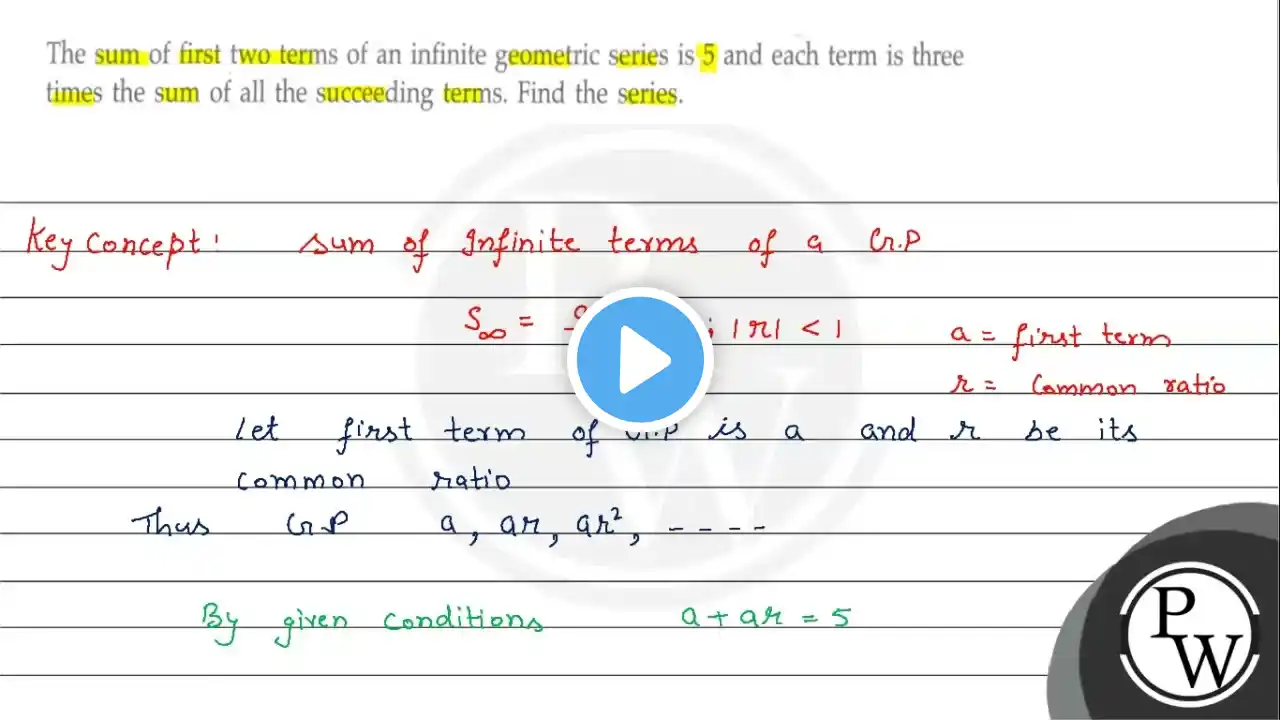 The sum of first two terms of an infinite geometric series is 5 and each term is three
times the sum of all the succeeding terms. Find the series.
Key Concept: Sum of Infinite terms of a G.P
S∞ = ; |r| < 1
a = first term
r = Common ratio
Let first term of G.P is a and r be its
common ratio
Thus G.P a, ar, ar², - - - -
By given conditions a + ar = 5
P
W